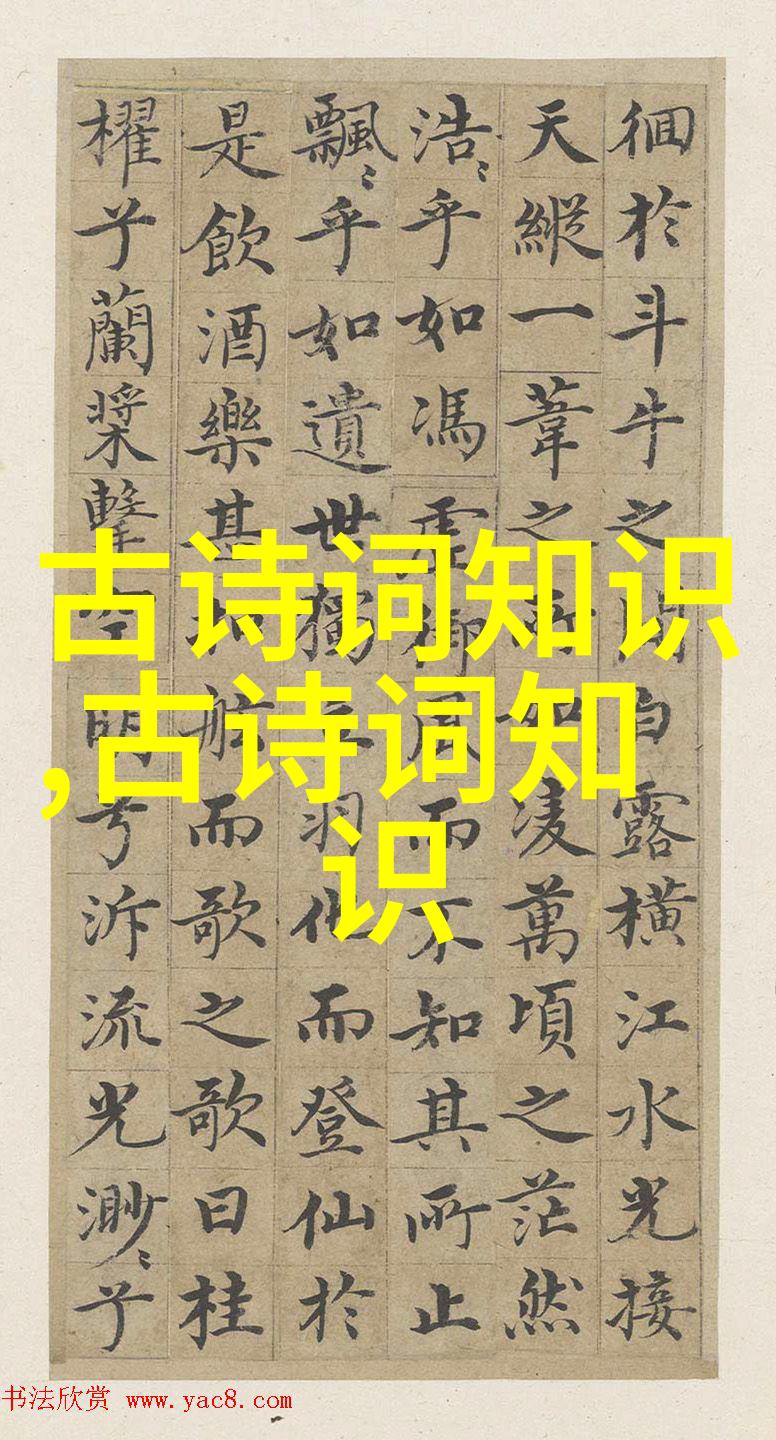 徊於斗牛之間白露橫江水光接
天縱一葦之所如凌萬頃之茫然
浩〻乎如馮虛御風而不知其所止
飄〻乎如遺世獨立羽化而登仙於
是飲酒樂甚扣舷而歌之歌曰桂
櫂兮蘭槳擊空明兮泝流光渺〻兮
古诗词知识
,古诗词知
识
书法欣赏 www.yac8.com